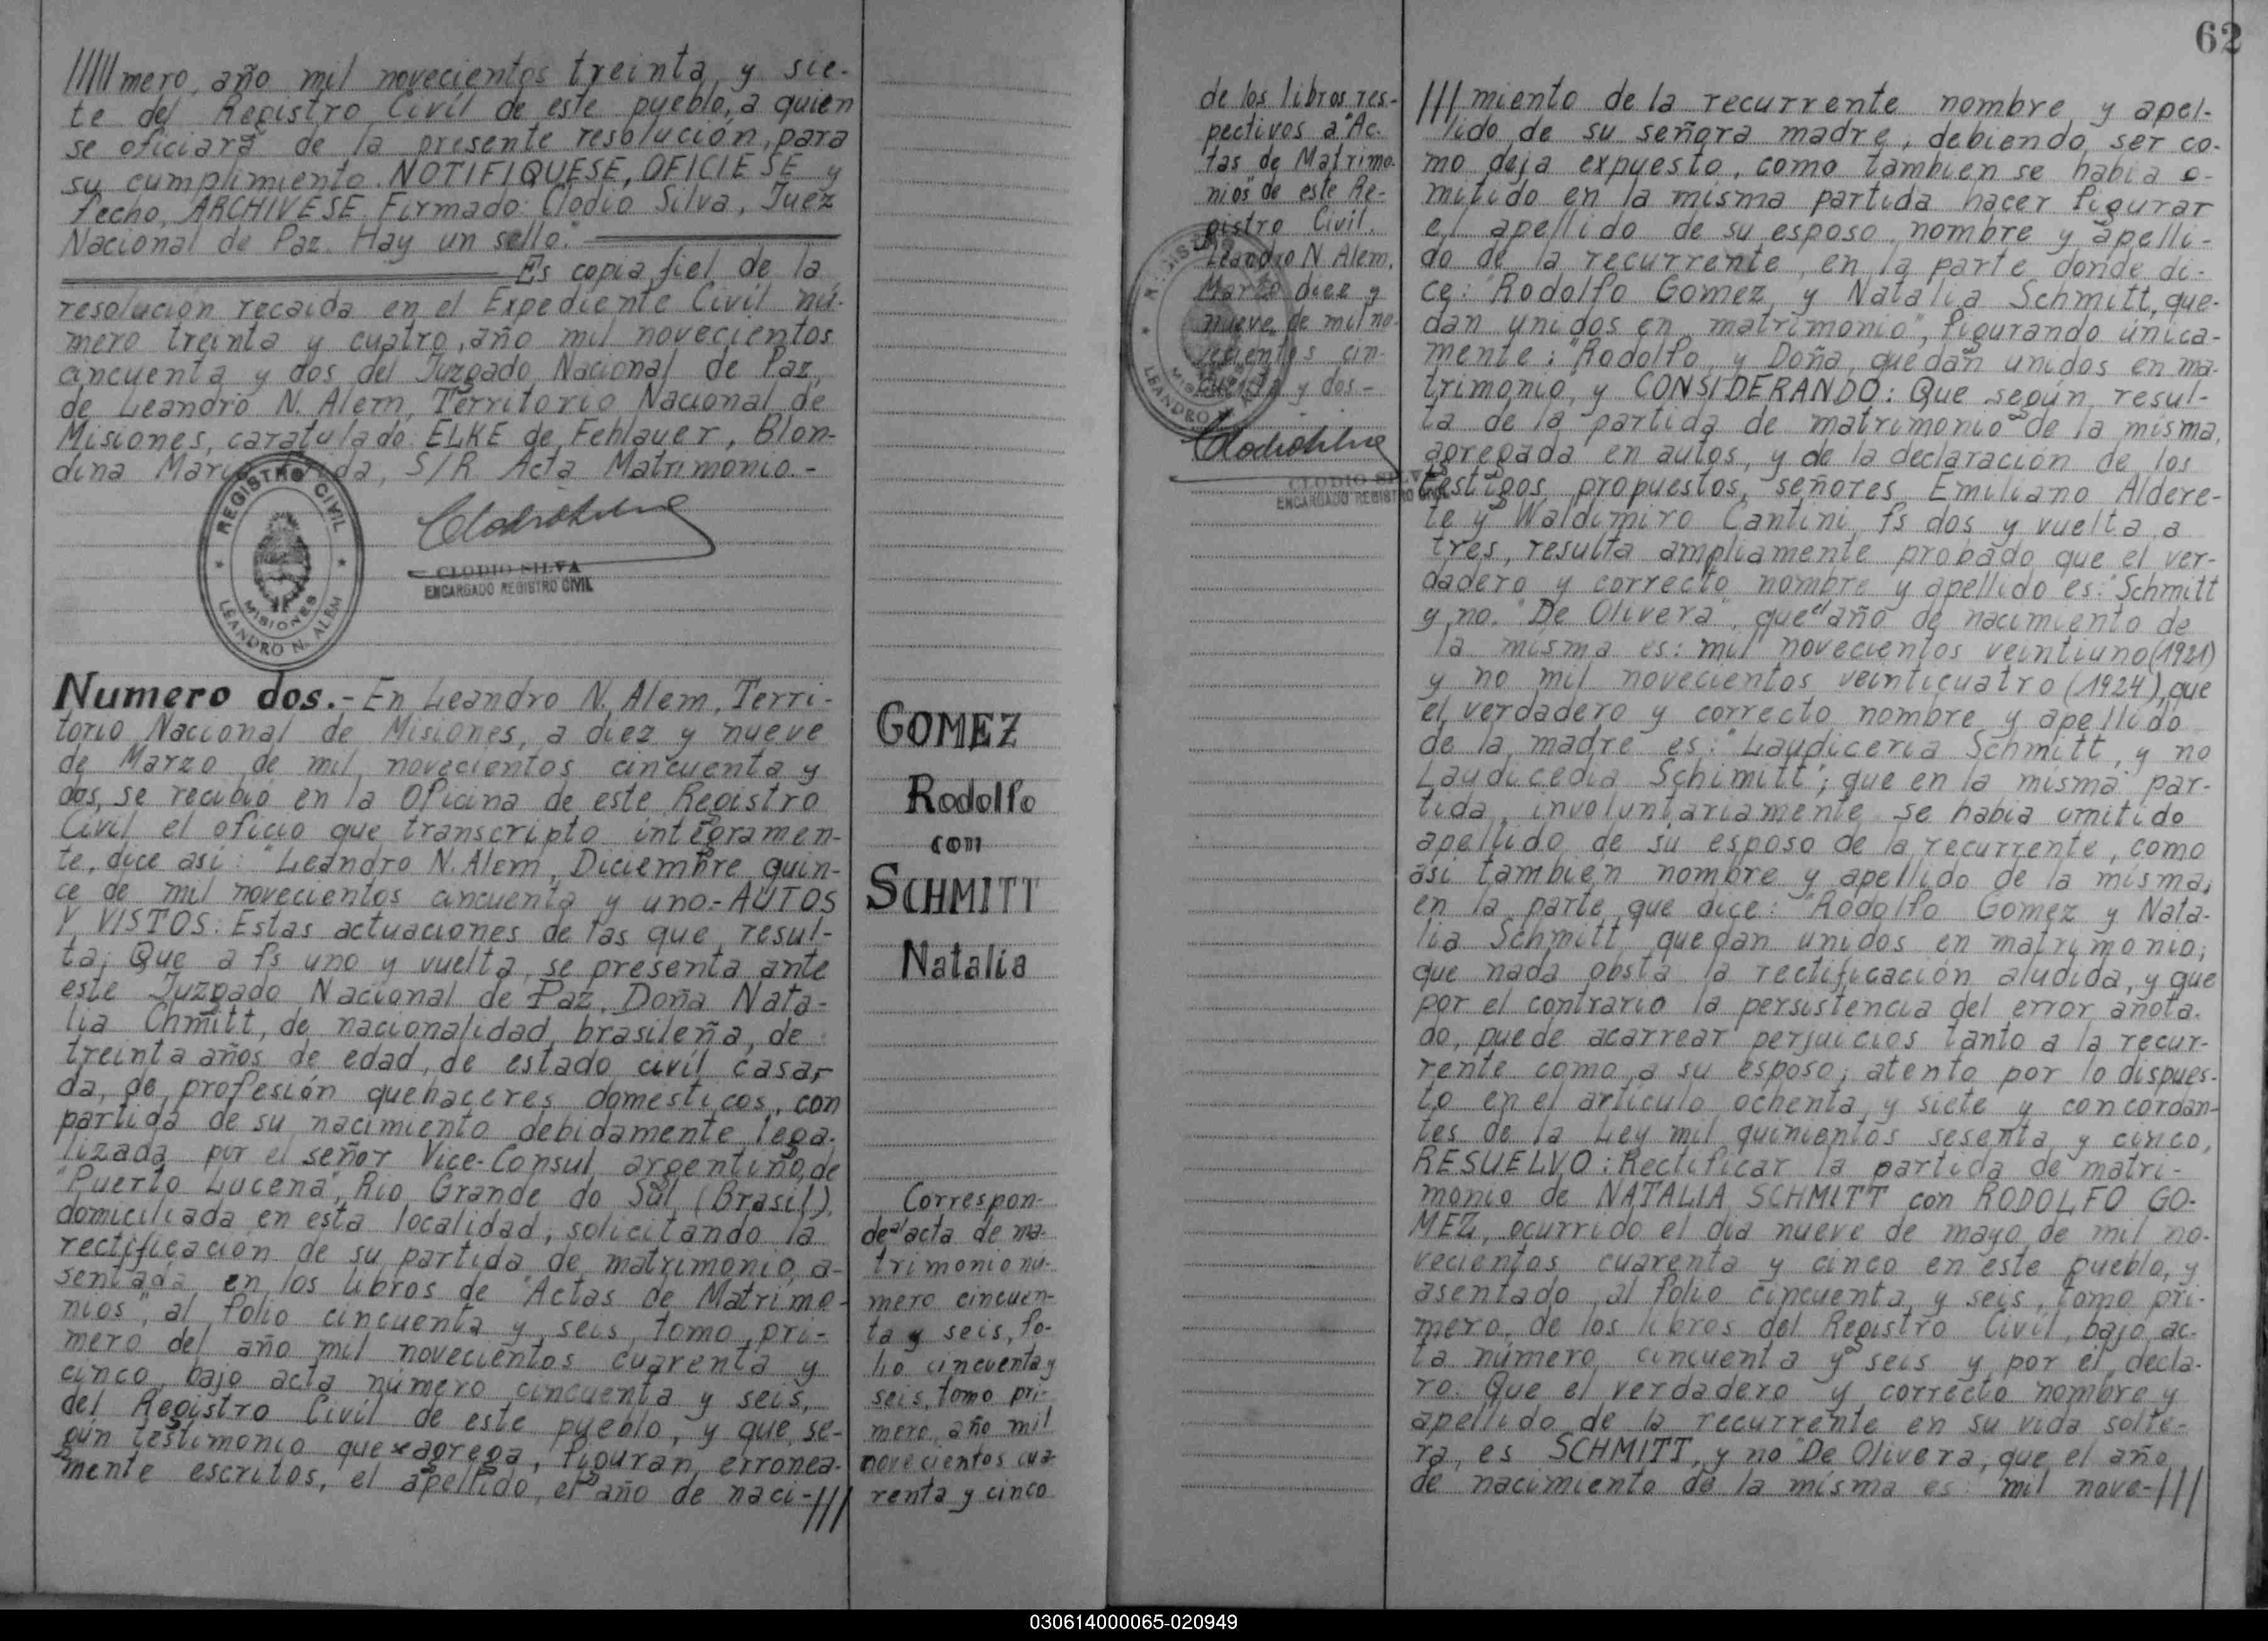 /////mero, año mil novecientos treinta y sie-
te del Registro Civil de este pueblo, a quien
se oficiará de la presente resolución, para
su cumplimiento. NOTIFIQUESE, OFICIESE y
fecho, ARCHIVESE. Firmado: Clodio Silva, Juez
Nacional de Paz. Hay un sello."
Es copia fiel de la
resolución recaida en el Expediente Civil nú-
mero treinta y cuatro, año mil novecientos
cincuenta y dos del Juzgado Nacional de Paz,
de Leandro N. Alem, Territorio Nacional de
Misiones, caratulado: ELKE de Fehlauer, Blon-
dina Maria, S/R. Acta Matrimonio.-
REGISTRO CIVIL
MISIONES
LEANDRO N. ALEM
CLODIO SILVA
ENCARGADO REGISTRO CIVIL
Numero dos.- En Leandro N. Alem, Terri-
torio Nacional de Misiones, a diez y nueve
de Marzo de mil novecientos cincuenta y
dos, se recibió en la Oficina de este Registro
Civil el oficio que transcripto integramen-
te, dice asi: "Leandro N. Alem, Diciembre quin-
ce de mil novecientos cincuenta y uno.- AUTOS
Y VISTOS: Estas actuaciones de las que resul-
ta: Que a fs uno y vuelta, se presenta ante
este Juzgado Nacional de Paz, Doña Nata-
lia Chmitt, de nacionalidad brasileña, de
treinta años de edad, de estado civil casa-
da, de profesión quehaceres domesticos, con
partida de su nacimiento debidamente lega-
lizada por el señor Vice-Consul argentino, de
"Puerto Lucena", Rio Grande do Sul (Brasil),
domiciliada en esta localidad, solicitando la
rectificación de su partida de matrimonio, a-
sentada en los libros de "Actas de Matrimo-
nios", al folio cincuenta y seis, tomo pri-
mero del año mil novecientos cuarenta y
cinco, bajo acta número cincuenta y seis,
del Registro Civil de este pueblo, y que, se-
gún testimonio que se agrega, figuran erronea-
mente escritos, el apellido, el año de naci-///
GOMEZ
Rodolfo
con
SCHMITT
Natalia
Correspon-
de al acta de ma-
trimonio nú-
mero cincuen-
ta y seis, fo-
lio cincuenta y
seis, tomo pri-
mero, año mil
novecientos cua-
renta y cinco
de los libros res-
pectivos a "Ac-
tas de Matrimo-
nios" de este Re-
gistro Civil.
Leandro N. Alem,
Marzo diez y
nueve de mil no-
vecientos cin-
cuenta y dos.-
LEANDRO N.
CLODIO SILVA
ENCARGADO REGISTRO CIVIL
62
///miento de la recurrente nombre y apel-
lido de su señora madre, debiendo ser co-
mo deja expuesto, como tambien se habia o-
mitido en la misma partida hacer figurar
el apellido de su esposo, nombre y apelli-
do de la recurrente, en la parte donde di-
ce: "Rodolfo Gomez y Natalia Schmitt, que-
dan unidos en matrimonio", figurando única-
mente: "Rodolfo y Doña, quedan unidos en ma-
trimonio, y CONSIDERANDO: Que según resul-
ta de la partida de matrimonio de la misma,
agregada en autos, y de la declaración de los
testigos propuestos, señores Emiliano Aldere-
te y Waldimiro Cantini fs dos y vuelta a
tres, resulta ampliamente probado que el ver-
dadero y correcto nombre y apellido es: "Schmitt
y no "De Olivera", que el año de nacimiento de
la misma es: mil novecientos veintiuno (1921)
y no mil novecientos veinticuatro (1924), que
el verdadero y correcto nombre y apellido
de la madre es: "Laudiceria Schmitt, y no
Laudicedia Schimitt"; que en la misma par-
tida, involuntariamente se habia omitido
apellido de su esposo de la recurrente, como
asi tambien nombre y apellido de la misma,
en la parte que dice: "Rodolfo Gomez y Nata-
lia Schmitt" quedan unidos en matrimonio;
que nada obsta la rectificación aludida, y que
por el contrario la persistencia del error anota-
do, puede acarrear perjuicios tanto a la recur-
rente como a su esposo; atento por lo dispues-
to en el articulo ochenta y siete y concordan-
tes de la Ley mil quinientos sesenta y cinco,
RESUELVO: Rectificar la partida de matri-
monio de NATALIA SCHMITT con RODOLFO GO-
MEZ, ocurrido el dia nueve de mayo de mil no-
vecientos cuarenta y cinco en este pueblo, y
asentado al folio cincuenta y seis, tomo pri-
mero, de los libros del Registro Civil, bajo ac-
ta número cincuenta y seis y por él, decla-
ro: Que el verdadero y correcto nombre y
apellido de la recurrente en su vida solte-
ra, es SCHMITT, y no "De Olivera, que el año
de nacimiento de la misma es: mil nove-///
030614000065-020949